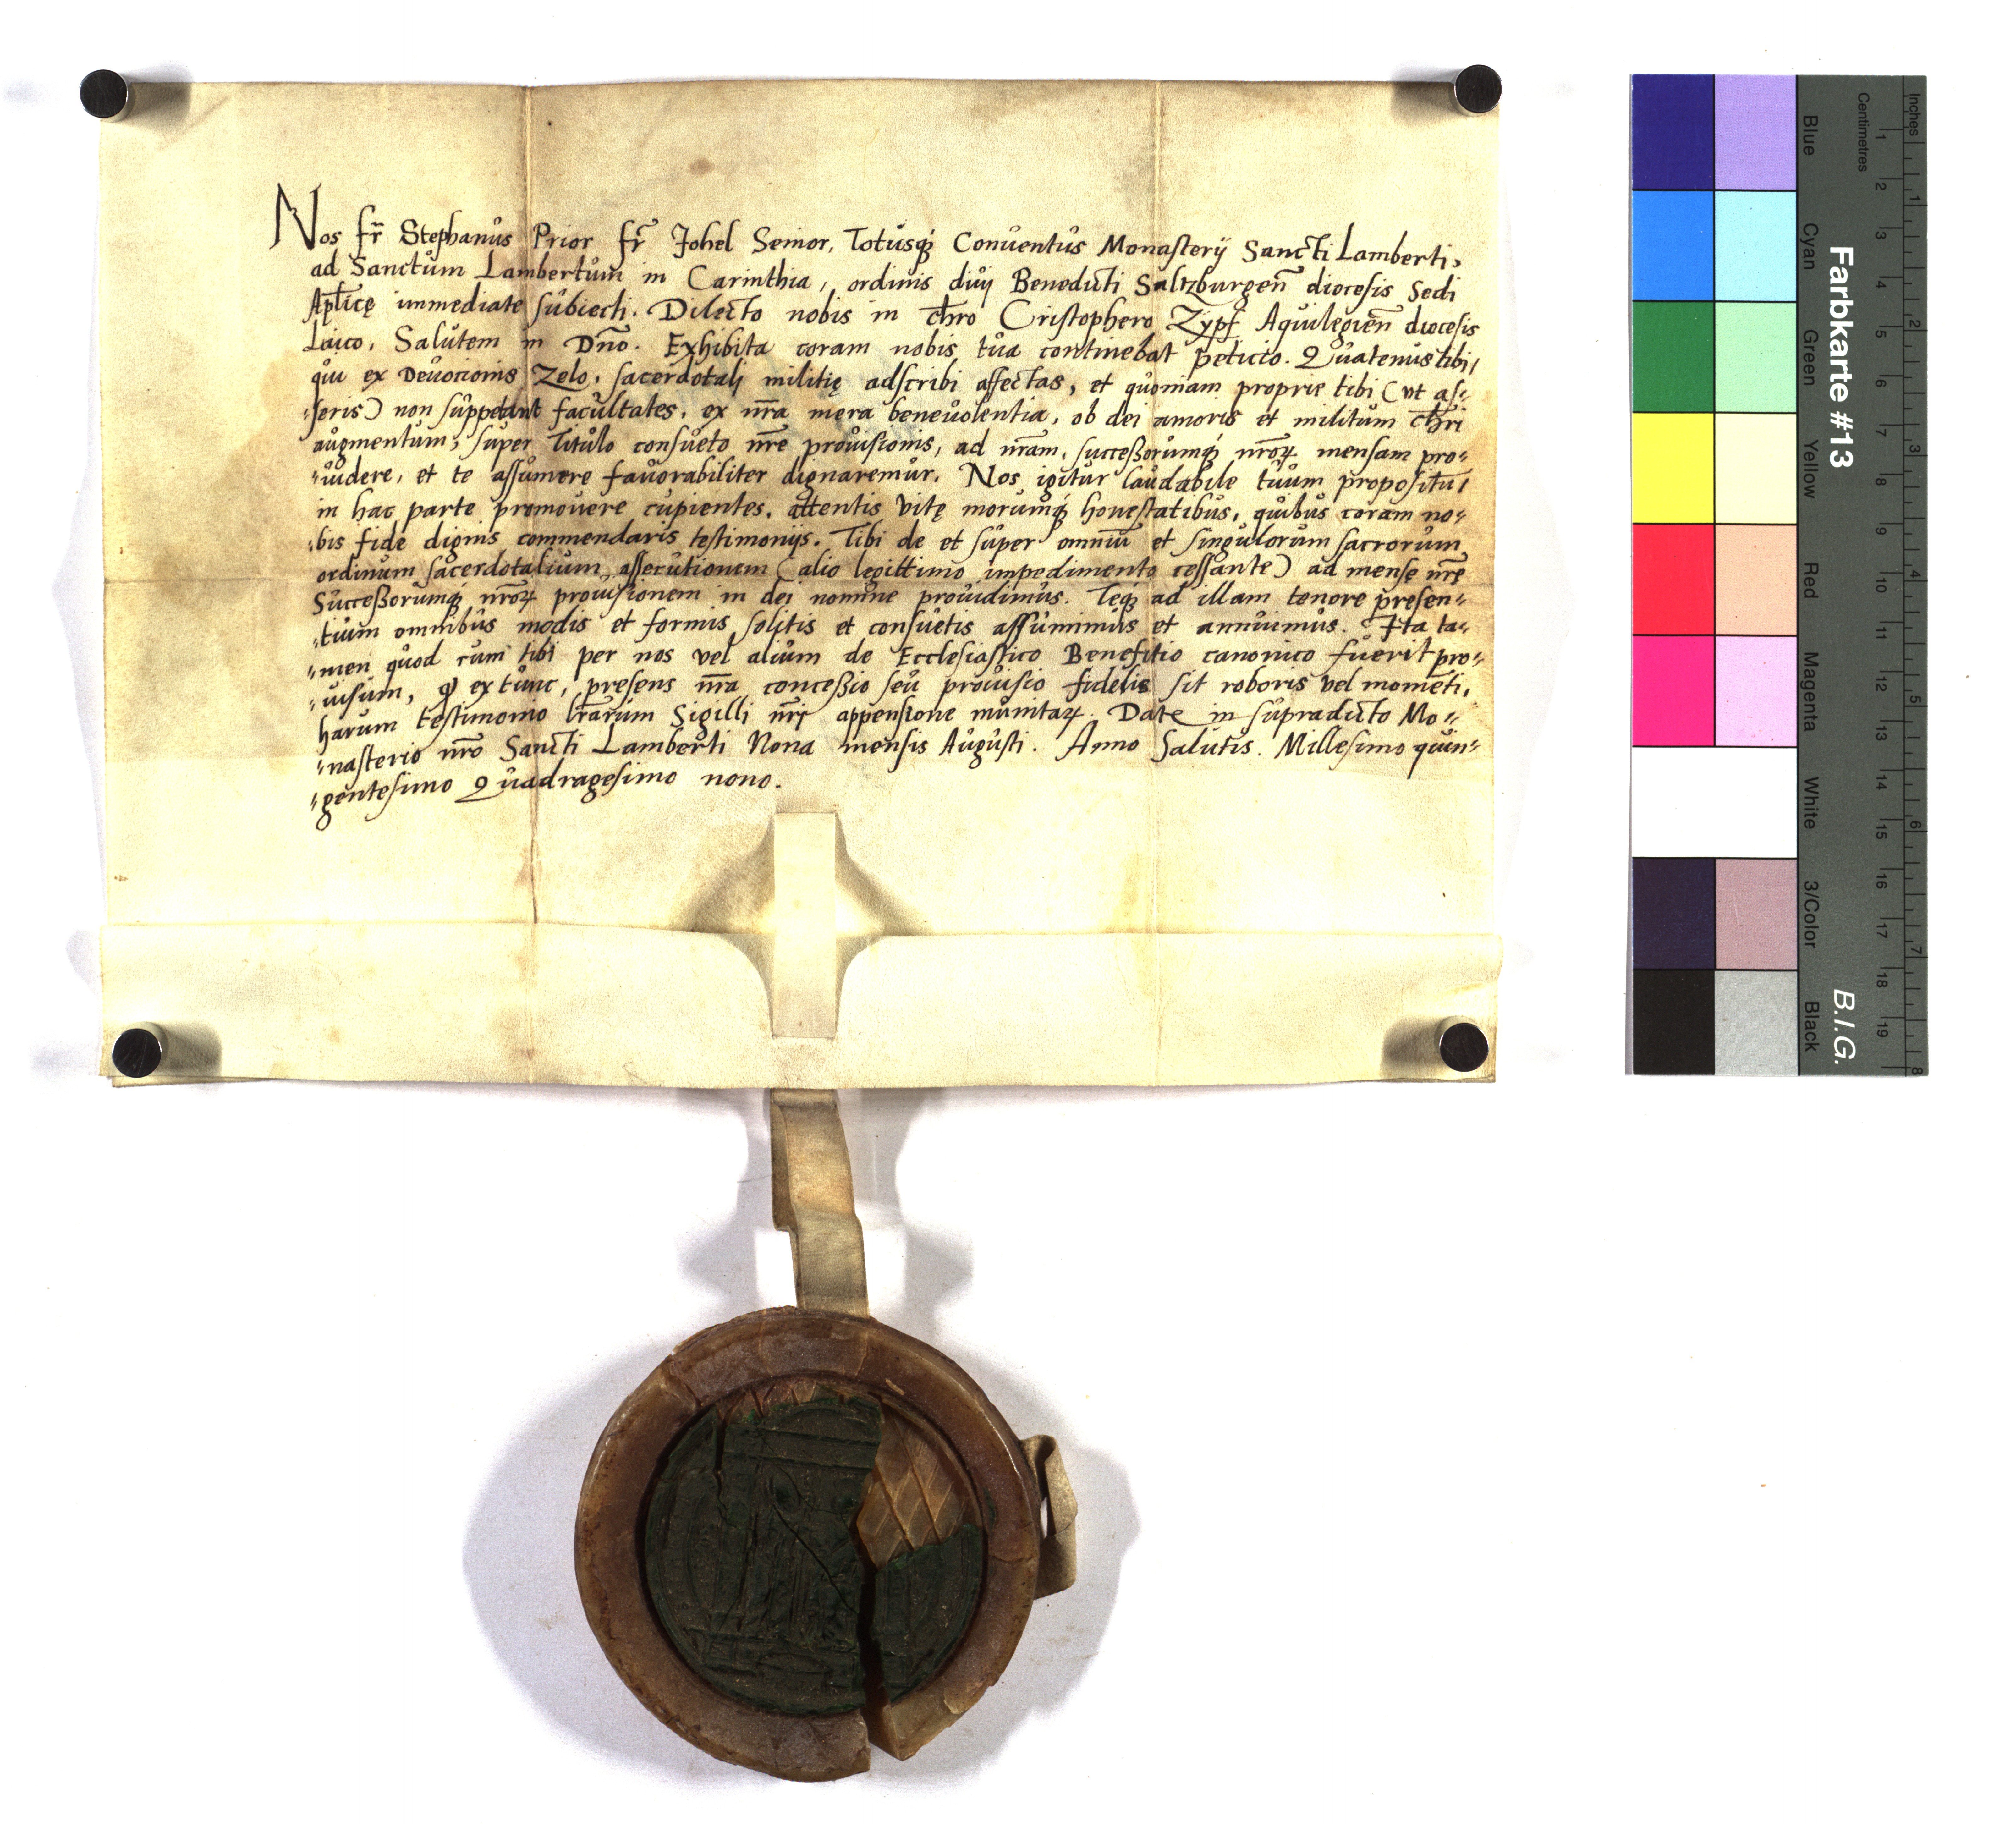 Nos fr̄ Stephanus Prior fr̄ Johel Senior, Totusq́ Conuentus Monasterij Sancti Lamberti,
ad Sanctum Lambertum in Carinthia, ordinis diuj Benedicti Saltzburgen̄ diocesis Sedi
Apl̄icę immediate subiecti. Dilecto nobis in ch̄ro Cristophero Zypf Aquilegien̄ diocesis
Laico, Salutem in Dn̄o. Exhibita coram nobis tua continebat peticio. Quatenus tibi,
qui ex Deuocionis Zelo, sacerdotalj militię adscribi affectas, et quoniam proprie tibi (vt as⸗
⸗seris) non suppetant facultates, ex nr̄a mera beneuolentia, ob dei amoris et militum ch̄ri
augmentum, super Titulo consueto nr̄e prouisionis, ad nr̄am, successorumq́ nr̄oꝝ mensam pro⸗
⸗uidere, et te assumere fauorabiliter dignaremur. Nos igitur laudabile tuum propositū,
in hac parte promouere cupientes, attentis vitę morumq́ honestatibus, quibus coram no⸗
⸗bis fide dignis commendaris testimonijs. Tibi de et super omniū et singulorum sacrorum
ordinum sacerdotalium, assecutionem (alio legittimo impedimento cessante) ad mensę nr̄ę
Successorumq́ nr̄oꝝ prouisionem in dei nomine prouidimus. Teq́ ad illam tenore presen⸗
⸗tium omnibus modis et formis solitis et consuetis assumimus et annuimus. Ita ta⸗
⸗men quod cum tibi per nos vel alium de Ecclesiastico Benefitio canonico fuerit pro⸗
⸗uisum, ꝙ extunc, presens nr̄a concessio seu prouisio fidelis sit roboris vel momēti,
harum testimonio lr̄arum Sigilli nr̄i appensione munitaꝝ. Date in supradicto Mo⸗
⸗nasterio nr̄o Sancti Lamberti Nona mensis Augusti. Anno Salutis. Millesimo quin⸗
⸗gentesimo Quadragesimo nono.
Inches
Centimetres
1 2 3 4 5 6 7 8 9 10 11 12 13 14 15 16 17 18 19
1 2 3 4 5 6 7 8
Farbkarte #13
B.I.G.
Blue
Cyan
Green
Yellow
Red
Magenta
White
3/Color
Black